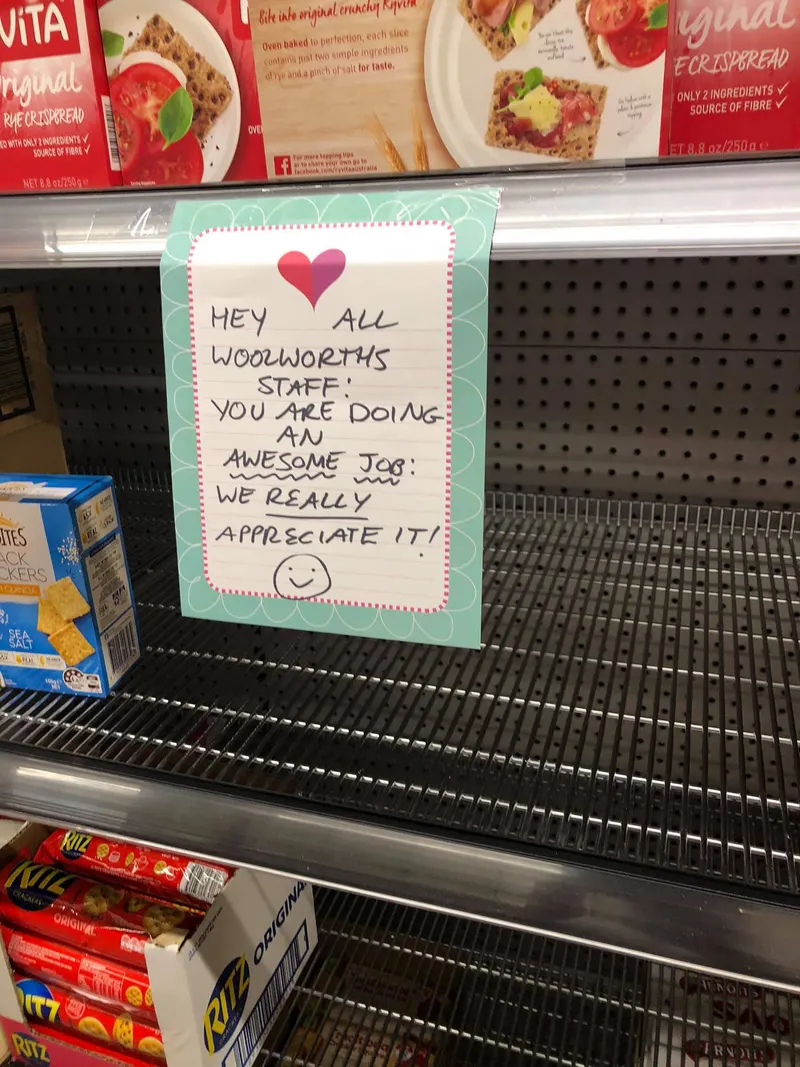 VITA
riginal
RYE CRISPBREAD
ED WITH ONLY 2 INGREDIENTS ✓
SOURCE OF FIBRE ✓
NET 8.8 oz/250g e
Bite into original crunchy Ryvita
Oven baked to perfection, each slice
contains just two simple ingredients
of rye and a pinch of salt for taste.
For more topping tips
or to share your own go to
facebook.com/ryvitaaustralia
OVE
iginal
E CRISPBREAD
ONLY 2 INGREDIENTS ✓
SOURCE OF FIBRE ✓
ET 8.8 oz/250g e
HEY ALL
WOOLWORTHS
STAFF:
YOU ARE DOING
AN
AWESOME JOB:
WE REALLY
APPRECIATE IT!
ITES
ACK
CKERS
QUINOA
SEA
SALT
RITZ
RITZ
CRACKERS
ORIGINAL
RITZ
RITZ
RITZ
ORIGINA
SAO